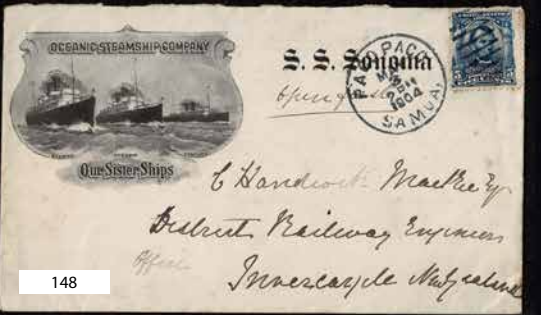 OCEANIC STEAMSHIP COMPANY
Our Sister Ships
S. S. Sonoma
PAGO PAGO
1904
SAMOA
5
C Mackie Esq
District Railway Engineers
Office
Invercargile New Zealand
148